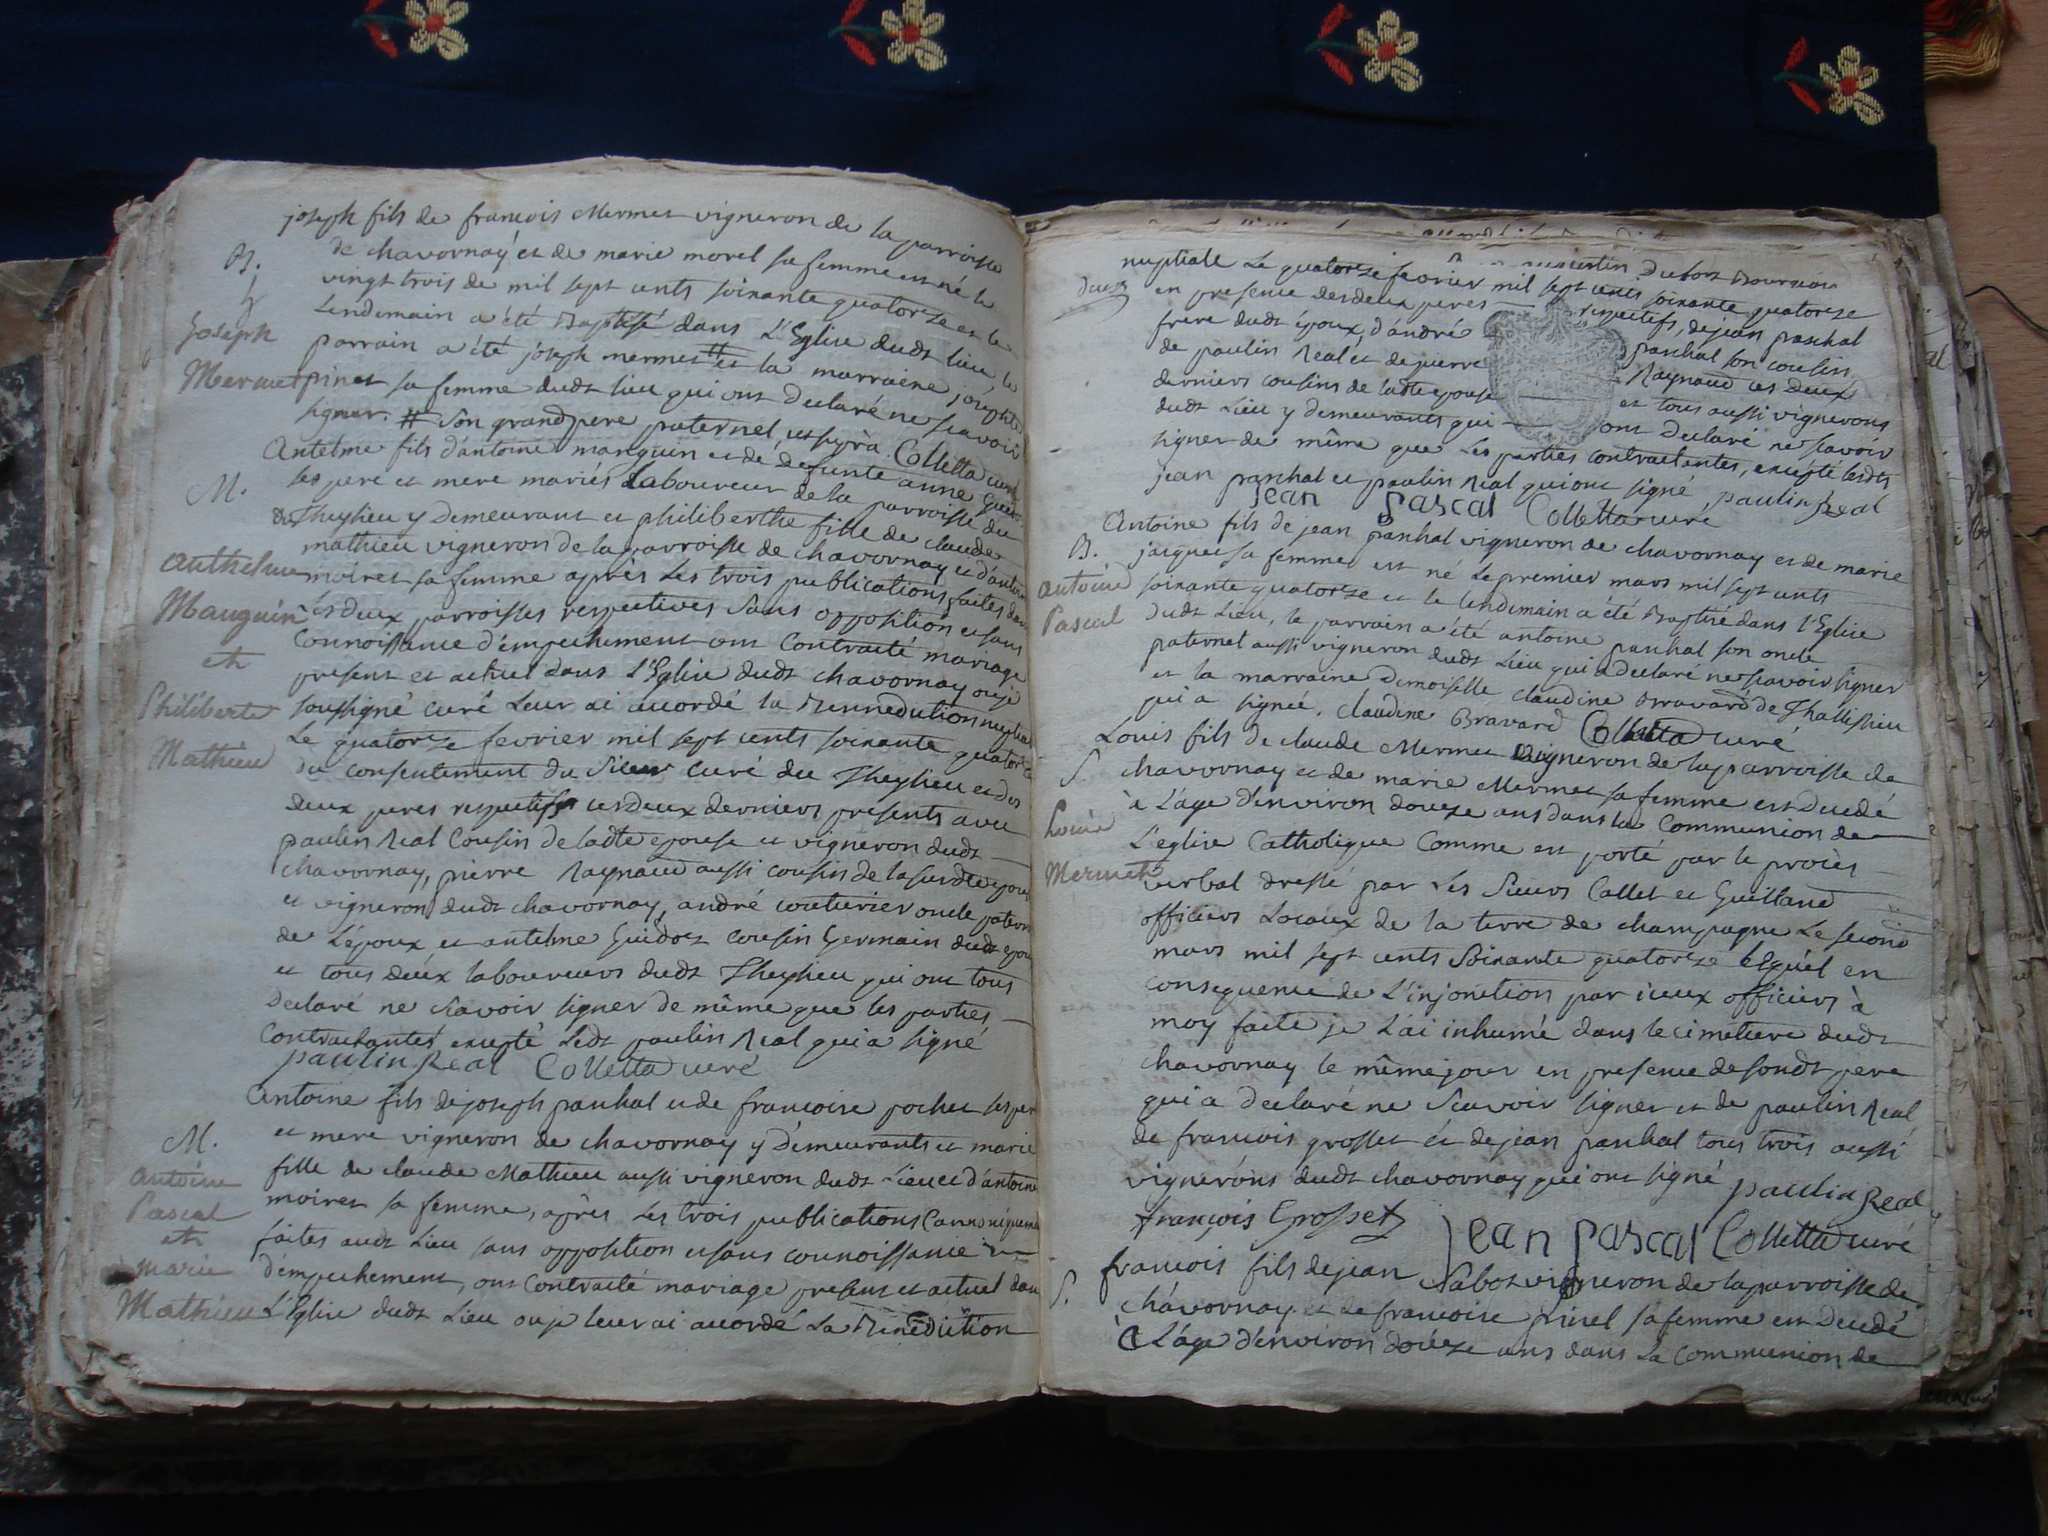 joseph fils de françois Mermet vigneron de la parroisse
de chavornay et de marie morel sa femme est né le
B.
vingt trois de mil sept cents soixante quatorze et le
Lendemain a été Baptisé dans L'Eglise dudt lieu, le
Joseph
parrain a été joseph mermet # et la marraine josephte
Mermet
pinet sa femme dudt lieu qui ont declaré ne scavoir
signer. # son grand pere paternel Colletta curé
Antelme fils d'antoine manguin et de defunte anne
ses pere et mere mariés Laboureur de la parroisse du
M.
Theylieu y demeurant et philiberthe fille de claude
mathieu vigneron de la parroisse de chavornay et d'antoine
Anthelme
moiret sa femme après Les trois publications faites dans
Manguin
les deux parroisses respectives sans opposition et sans
connoissance d'empechement ont contracté mariage
et
present et actuel dans L'Eglise dudt chavornay ou je
Philiberte
soussigné curé Leur ai accordé la Bennediction nuptiale
Le quatorze fevrier mil sept cents soixante quatorze
Mathieu
du consentement du Sieur curé du Theylieu et des
deux peres respectifs ces deux derniers presents avec
paulin Real Cousin de ladte epouse et vigneron dudt
chavornay, pierre Raynaud aussi cousin de la susdte epouse
et vigneron dudt chavornay, andré couturier oncle paternel
de L'époux et antelme Guidot cousin Germain dudt epoux
et tous deux laboureurs dudt Theylieu qui ont tous
declaré ne scavoir signer de même que les parties
Contractantes excepté Ledt paulin Real qui a signé
paulin Real Colletta curé
Antoine fils de joseph paschal et de francoise pochet ses pere
et mere vigneron de chavornay y demeurants et marie
M.
fille de claude Mathieu aussi vigneron dudt Lieu et d'antoine
Antoine
moiret sa femme, après Les trois publications Cannoniquement
Pascal
et
faites audt Lieu sans opposition et sans connoissance
marie
d'empechement, ont Contracté mariage present et actuel dans
Mathieu
L'Eglise dudt Lieu ou je leur ai accordé La Benediction
nuptiale Le quatorze fevrier mil sept cents soixante quatorze
en presence des deux peres respectifs, de jean paschal
frere dudt époux, d'andré paschal son cousin
de paulin Real et de pierre Raynaud ces deux
derniers cousins de ladte epouse et tous aussi vignerons
dudt Lieu y demeurants qui ont declaré ne scavoir
signer de même que Les parties contractantes, excépté lesdts
jean paschal et paulin Real qui ont signé paulin Real
jean pascal Colletta curé
Antoine fils de jean paschal vigneron de chavornay et de marie
B.
jacquet sa femme est né Le premier mars mil sept cents
Antoine
soixante quatorze et le lendemain a été Baptisé dans l'Eglise
Pascal
dudt Lieu, le parrain a été antoine paschal son oncle
paternel aussi vigneron dudt Lieu qui a declaré ne scavoir signer
et la marraine Demoiselle claudine Bravard de
qui a signée. claudine Bravard Colletta curé
Louis fils de claude Mermet vigneron de la parroisse de
S.
chavornay et de marie Mermet sa femme est decedé
à L'age d'environ douze ans dans la Communion de
Louis
L'eglise Catholique Comme est porté par le procès
Mermet
verbal dressé par Les Sieurs Callet et Guilland
officiers Locaux de la terre de champagne Le second
mars mil sept cents Soixante quatorze lequel en
consequence de L'injonction par iceux officiers à
moy faite je L'ai inhumé dans le cimetiere dudt
chavornay le même jour en presence de sondt pere
qui a declaré ne Scavoir signer et de paulin Real
de francois grosset et de jean paschal tous trois aussi
vignerons dudt chavornay qui ont signé paulin Real
françois Grosset jean pascal Colletta curé
francois fils de jean Sabot vigneron de la parroisse de
S.
chavornay et de francoise pinet sa femme est decedé
à L'age d'environ douze ans dans La communion de